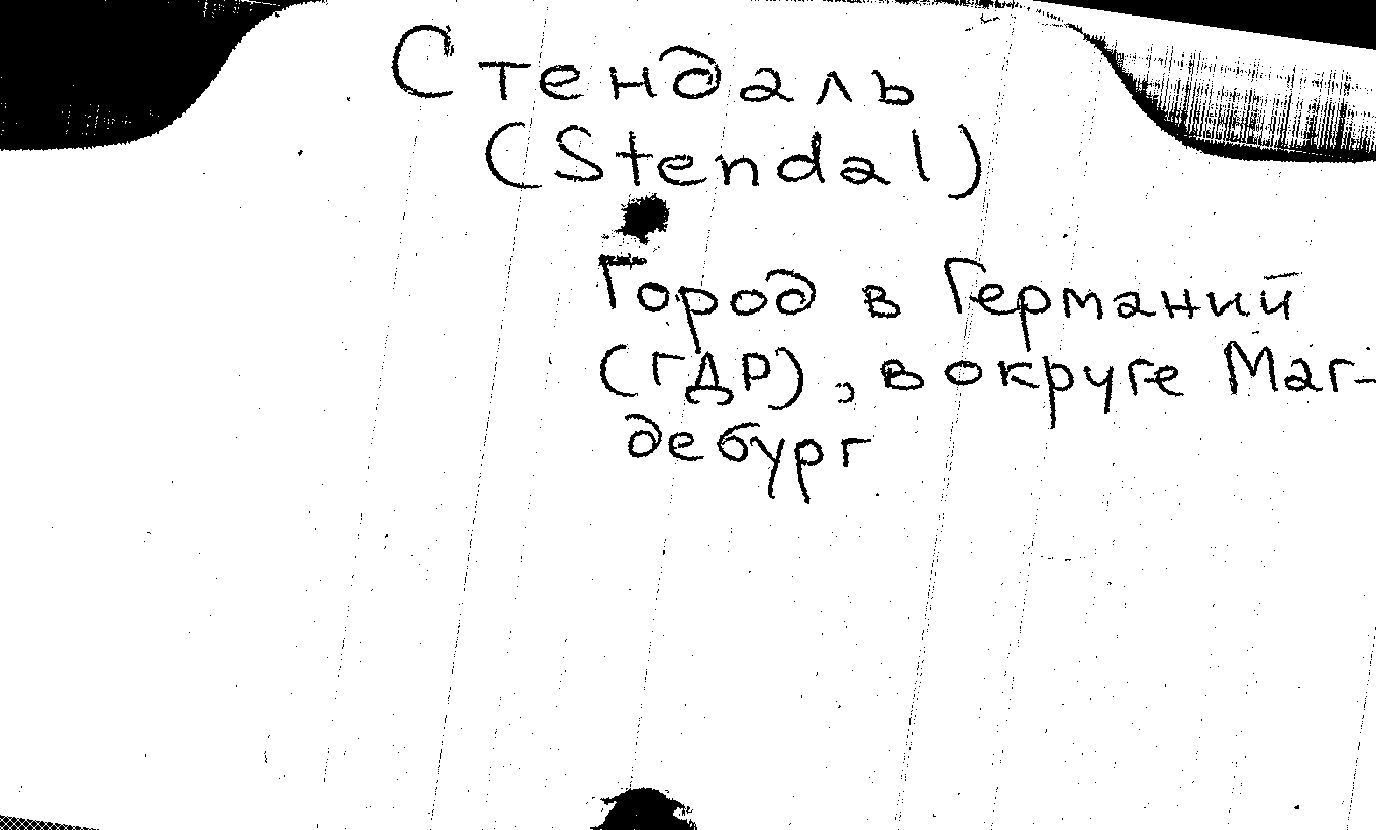 Стендаль
(Stendal)
Город в Германий
(ГДР), в округе Маг-
дебург